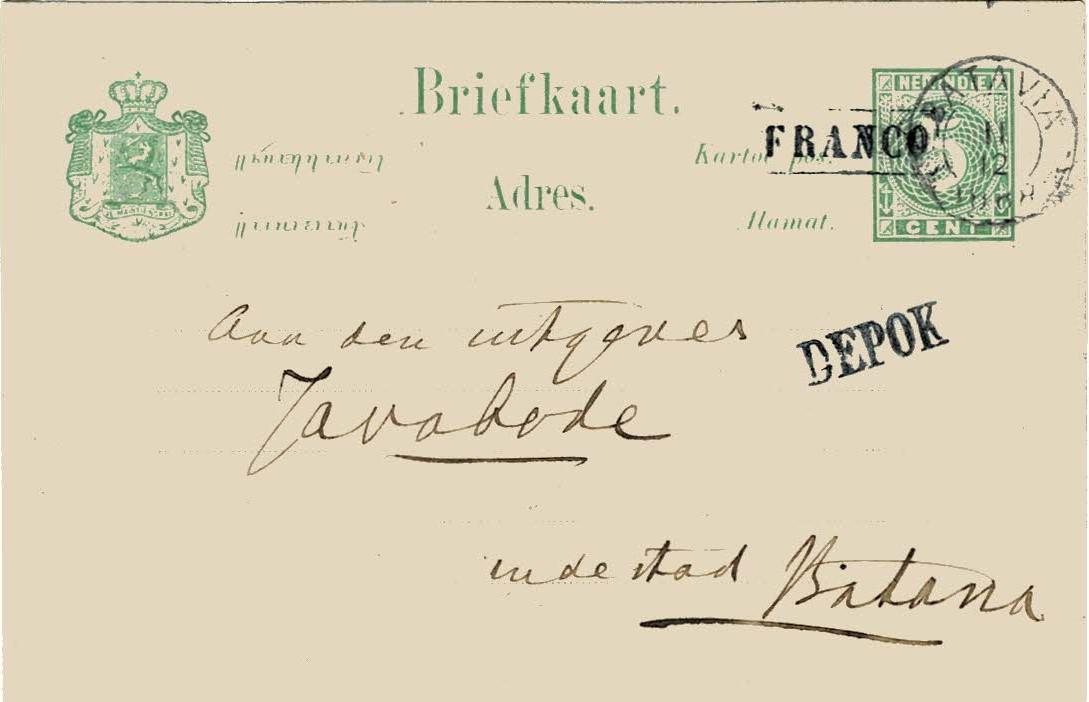 Briefkaart.
Kartoe pos.
Adres.
Alamat.
NED. INDIË
CENT
FRANCO
BATAVIA
11
12
JE MAINTIENDRAI
DEPOK
Aan den uitgever
Javabode
in de stad Batavia